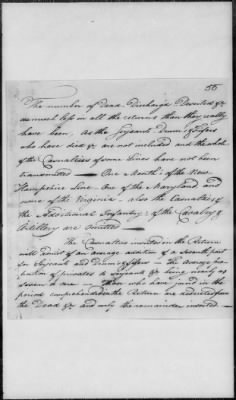 56
The number of Dead Discharg'd Deserted &c
is much less in all the returns than they really
have been, as the Serjeants Drums & Fifers
who have died &c are not included and the whole
of the Casualties of some Lines have not been
transmitted — One Month of the New
Hampshire Line. One of the Maryland and
none of the Virginia. also the Casualties of
the Additional Infantry; of the Cavalry &
Artillery are omitted —
The Casualties inserted in the Return
will admit of an average addition of a seventh part
for Serjeants and Drums & fifers — The average pro
portion of privates to Serjeants &c being nearly as
seven to one — Those who have join'd in the
period comprehended in the Return are deducted from
the Dead &c and only the remainder inserted —